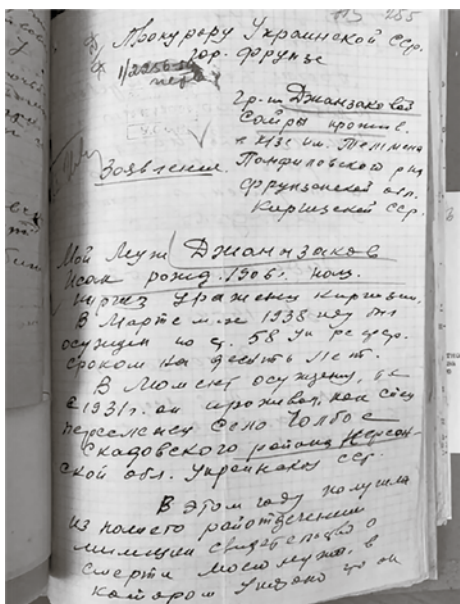 115 255
Прокурору Украинской ССР.
гор. Фрунзе
Гр-ки Джанзаковой
Сайры прожив.
в к/зе им. Тельмана
Панфиловского р-на
Фрунзенской обл.
Киргизской ССР.
Заявление.
Мой муж Джанзаков
Исак рожд. 1906 г. нац.
киргиз уроженец Киргизии,
В Марте м-це 1938 году был
осужден по ст. 58 Ук РСФСР.
сроком на десять лет.
В момент осуждения,
с 1931 г. он проживал как спец
переселенец село Чолбас
Скадовского района Херсон-
ской обл. Украинской ССР.
В этом году получила
из нашего райотделения
милиции свидетельство о
смерти моего мужа, в
котором указано что он